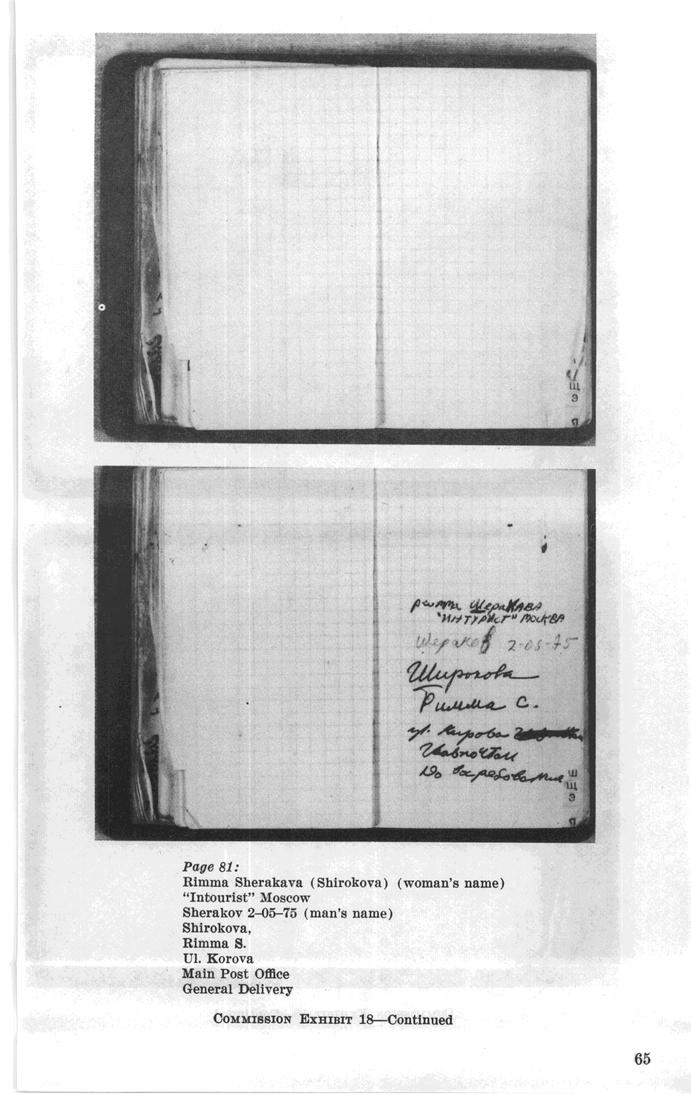 Щ
Э
Я
римма ШераКАВА
"ИНТУРИСТ" МОСКВА
Шераков 2-05-75
Широкова
Римма С.
ул. Кирова
Главпочтам
До востребования
Ш
Щ
Э
Я
Page 81:
Rimma Sherakava (Shirokova) (woman's name)
“Intourist” Moscow
Sherakov 2–05–75 (man's name)
Shirokova,
Rimma S.
Ul. Korova
Main Post Office
General Delivery
COMMISSION EXHIBIT 18—Continued
65